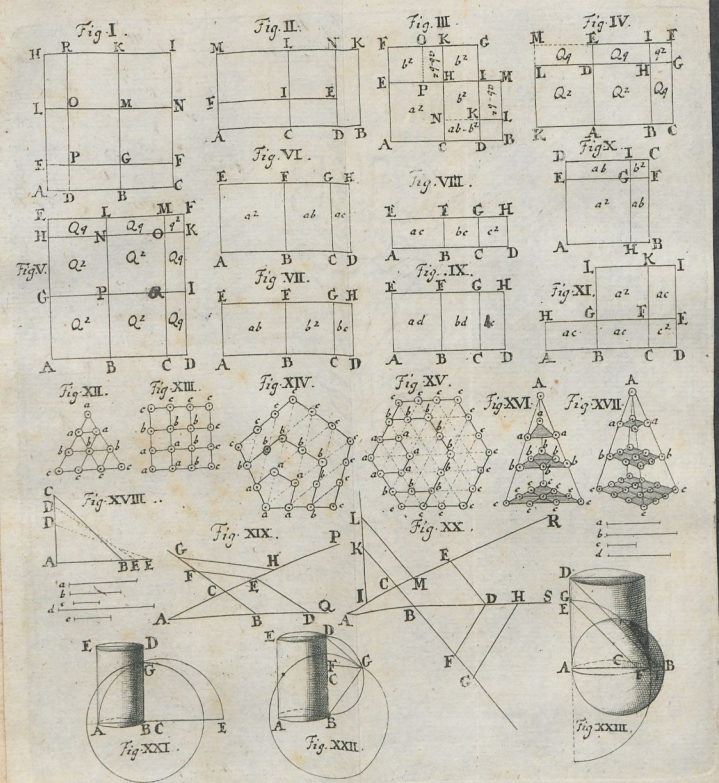 Fig. I.
H R K I
L O M N
E P G F
A D B C
Fig. II.
M L N K
F I E
A C D B
Fig. III.
F O K G
b² b²
E P H I M
a² b²
N K L
ab-b²
A C D B
Fig. IV.
M E I F
Qq Qq q²
L D H G
Q² Q² Qq
K A B C
Fig. V.
E L M F
Qq Qq q²
H N O K
Q² Q² Qq
G P I
Q² Q² Qq
A B C D
Fig. VI.
E F G H
a² ab ac
A B C D
Fig. VII.
E F G H
ab b² bc
A B C D
Fig. VIII.
E F G H
ac bc c²
A B C D
Fig. IX.
E F G H
ad bd
A B C D
Fig. X.
D I C
ab b²
E G F
a² ab
A H B
Fig. XI.
L K I
a² ac
H G F E
ac ac c²
A B C D
Fig. XII.
a
a a
b b b
c c c c
Fig. XIII.
c c c c
b b b c
a a b c
a a b c
Fig. XIV.
Fig. XV.
Fig. XVI.
A
a a
b b
c c
Fig. XVII.
A
a a
b b
c c
a
b
c
d
Fig. XVIII.
C
D
D
A B E E E
a
b
c
d
e
Fig. XIX.
G P
F H
C E
A B D Q
Fig. XX.
L R
K E
C M
I
A B D H S
F
G
Fig. XXI.
E D
G
A B C E
Fig. XXII.
E D
F G
C
A B
Fig. XXIII.
D
G
E
A C F B